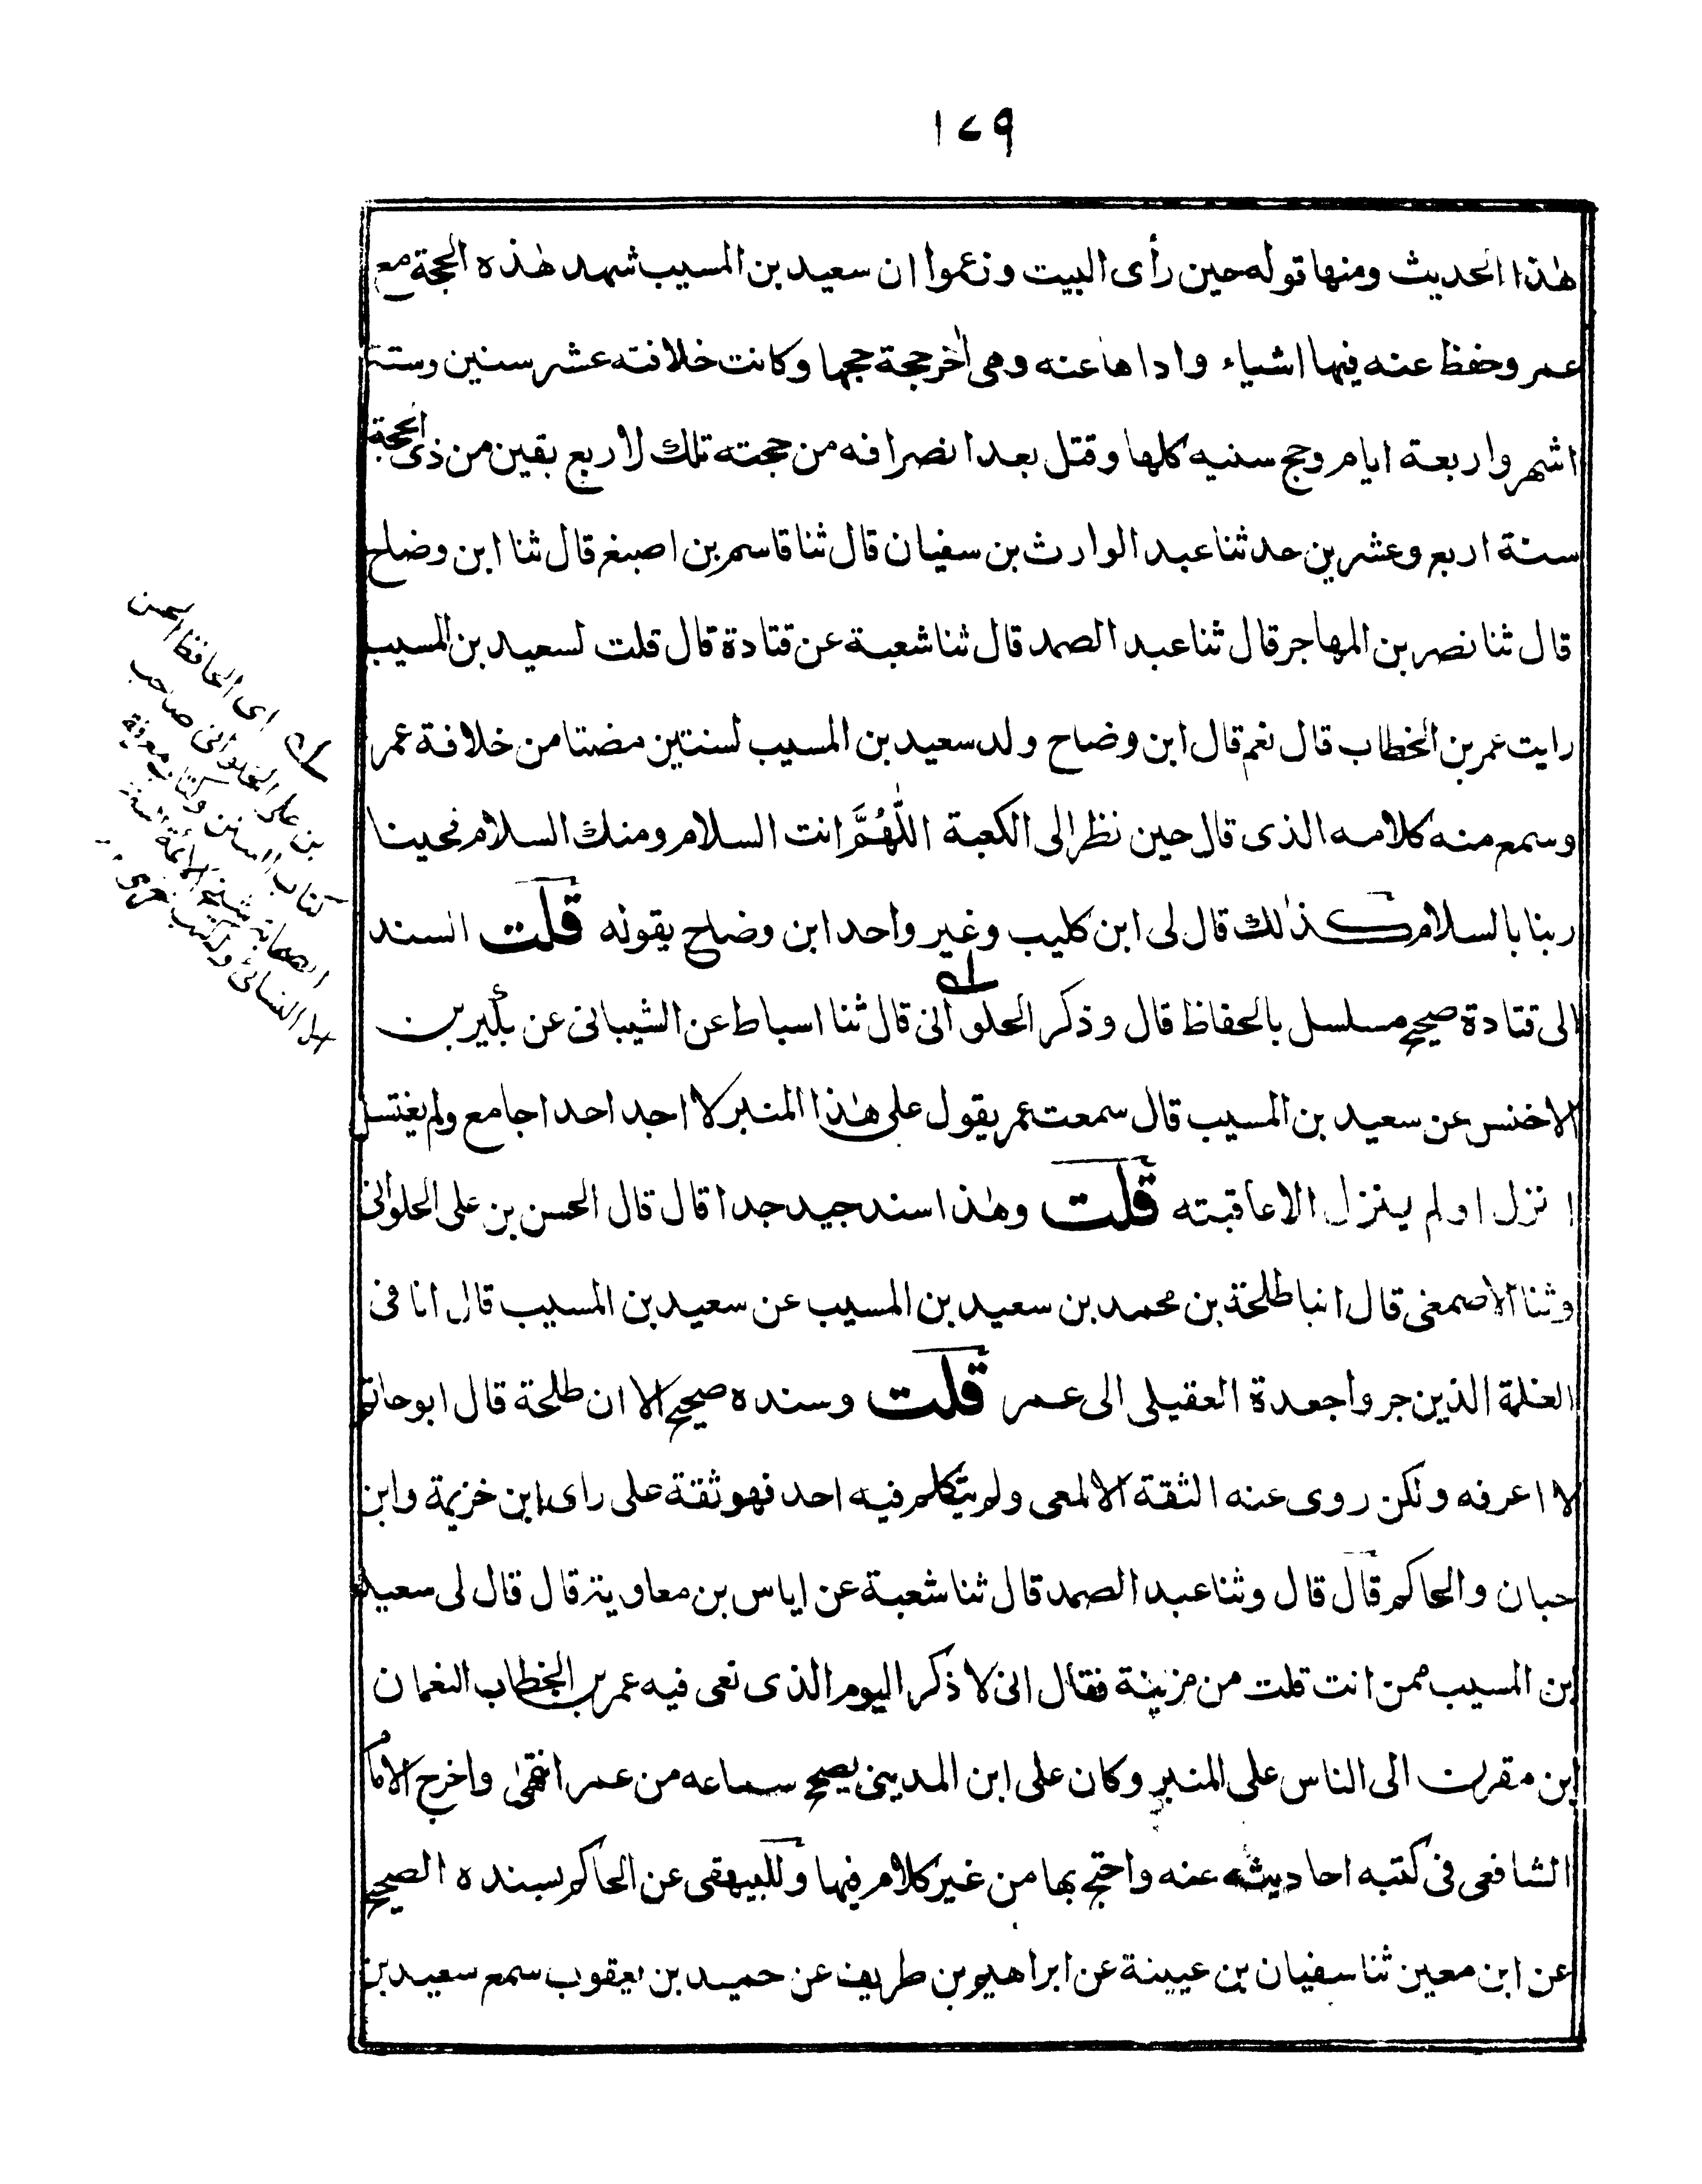 ١٧٩
هٰذا الحديث ومنها قوله حين رأى البيت وزعموا ان سعيد بن المسيب شهد هٰذه الحجة مع
عمر وحفظ عنه فيها اشياء واداها عنه وهى اٰخر حجة حجها وكانت خلافته عشر سنين وستة
اشهر واربعة ايام وحج سنيه كلها وقتل بعد انصرافه من حجته تلك لاربع بقين من ذى الحجة
سنة اربع وعشرين حدثنا عبد الوارث بن سفيان قال ثنا قاسم بن اصبغ قال ثنا ابن وضاح
قال ثنا نصر بن المهاجر قال ثنا عبد الصمد قال ثنا شعبة عن قتادة قال قلت لسعيد بن المسيب
رايت عمر بن الخطاب قال نعم قال ابن وضاح ولد سعيد بن المسيب لسنتين مضتا من خلافة عمر
وسمع منه كلامه الذى قال حين نظر الى الكعبة اللّٰهُمَّ انت السلام ومنك السلام فحينا
ربنا بالسلام كذٰلك قال لى ابن كليب وغير واحد ابن وضاح يقوله قلت السند
الى قتادة صحيح مسلسل بالحفاظ قال وذكر الحلوانى قال ثنا اسباط عن الشيبانى عن بكير بن
الاخنس عن سعيد بن المسيب قال سمعت عمر يقول على هٰذا المنبر لا اجد احدا جامع ولم يغتسل
انزل اولم ينزل الا عاقبته قلت وهٰذا سند جيد جدا قال قال الحسن بن على الحلوانى
وثنا الاصمعى قال انبا طلحة بن محمد بن سعيد بن المسيب عن سعيد بن المسيب قال انا فى
الغلمة الذين جروا جعدة العقيلى الى عمر قلت وسنده صحيح الا ان طلحة قال ابو حاتم
لا اعرفه ولكن روى عنه الثقة الالمعى ولم يتكلم فيه احد فهو ثقة على راى ابن خزيمة وابن
حبان والحاكم قال قال وثنا عبد الصمد قال ثنا شعبة عن اياس بن معاوية قال قال لى سعيد
ابن المسيب ممن انت قلت من مزينة فقال انى لاذكر اليوم الذى نعى فيه عمر بن الخطاب النعمان
ابن مقرن الى الناس على المنبر وكان على ابن المدينى يصحح سماعه من عمر انتهىٰ واخرج الامام
الشافعى فى كتبه احاديثه عنه واحتج بها من غير كلام فيها وللبيهقى عن الحاكم بسنده الصحيح
عن ابن معين ثنا سفيان بن عيينة عن ابراهيم بن طريف عن حميد بن يعقوب سمع سعيد بن
اى الحافظ الحسن
بن على الحلوانى صاحب
كتاب السنن وكتاب معرفة
الصحابة شيخ الائمة الستة